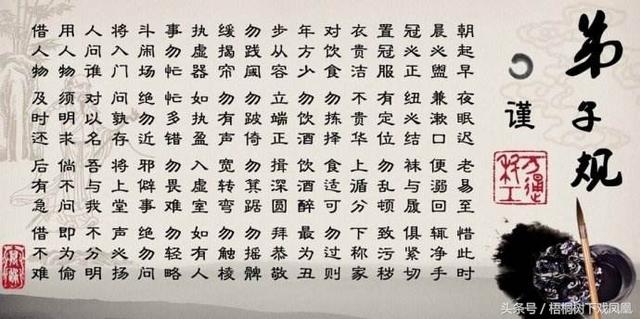 弟子规
谨
朝起早 夜眠迟 老易至 惜此时
晨必盥 兼漱口 便溺回 辄净手
冠必正 纽必结 袜与履 俱紧切
置冠服 有定位 勿乱顿 致污秽
衣贵洁 不贵华 上循分 下称家
对饮食 勿拣择 食适可 勿过则
年方少 勿饮酒 饮酒醉 最为丑
步从容 立端正 揖深圆 拜恭敬
勿践阈 勿跛倚 勿箕踞 勿摇髀
缓揭帘 勿有声 宽转弯 勿触棱
执虚器 如执盈 入虚室 如有人
事勿忙 忙多错 勿畏难 勿轻略
斗闹场 绝勿近 邪僻事 绝勿问
将入门 问孰存 将上堂 声必扬
人问谁 对以名 吾与我 不分明
用人物 须明求 倘不问 即为偷
借人物 及时还 后有急 借不难
头条号 / 梧桐树下戏凤凰